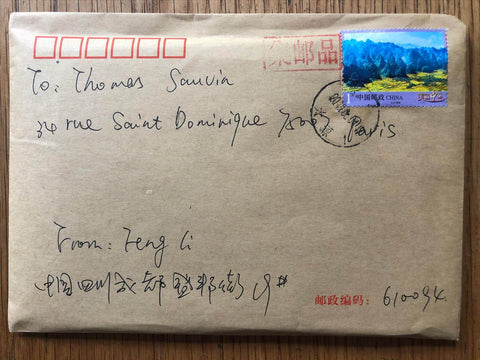 邮品
中国邮政 CHINA
To: Thomas Sauvin
rue Saint Dominique 75007 Paris
From: Feng Li
中国四川成都 9#
邮政编码: 610094